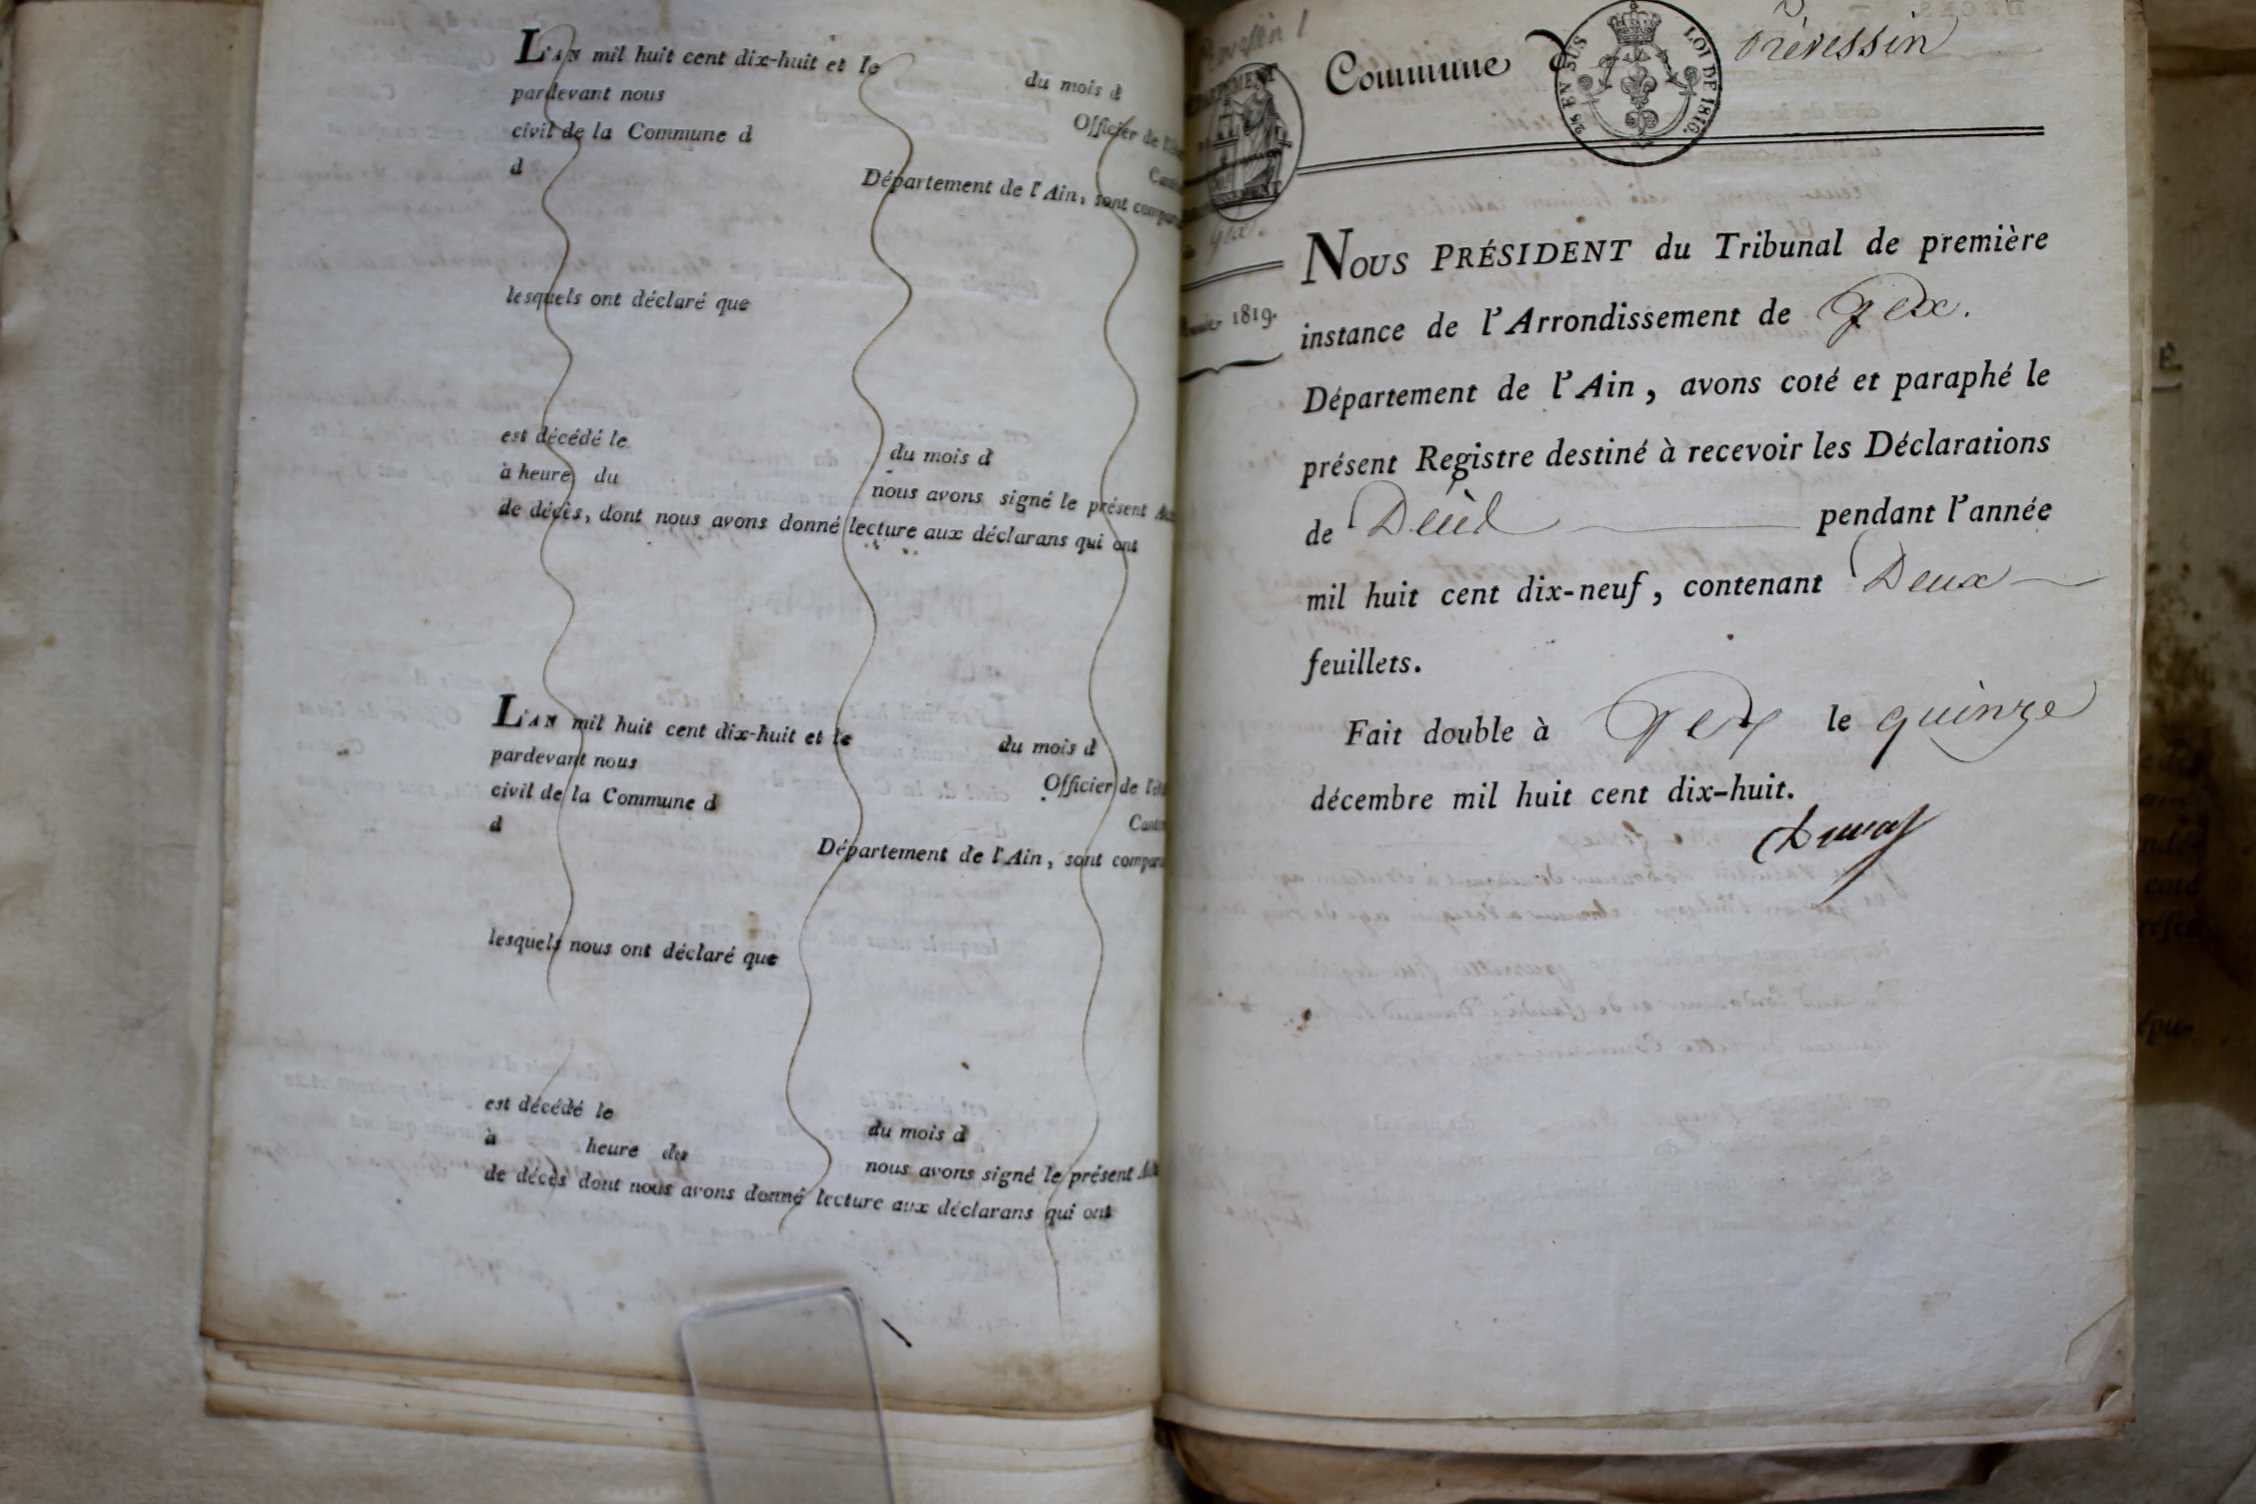 L'AN mil huit cent dix-huit et le
du mois d
pardevant nous
Officier de l'
civil de la Commune d
d
Département de l'Ain, sont
lesquels ont déclaré que
est décédé le
du mois d
à heure du
nous avons signé le présent
de décès, dont nous avons donné lecture aux déclarans qui ont
L'AN mil huit cent dix-huit et le
du mois d
pardevant nous
Officier de l'
civil de la Commune d
d
Département de l'Ain, sont
lesquels nous ont déclaré que
est décédé le
du mois d
à heure du
nous avons signé le présent
de décès dont nous avons donné lecture aux déclarans qui ont
Commune d Prévessin
25 EN SUS
LOI DE 1816.
Gex.
1819.
NOUS PRÉSIDENT du Tribunal de première
instance de l'Arrondissement de Gex.
Département de l'Ain, avons coté et paraphé le
présent Registre destiné à recevoir les Déclarations
de pendant l'année
mil huit cent dix-neuf, contenant Deux
feuillets.
Fait double à Gex le quinze
décembre mil huit cent dix-huit.